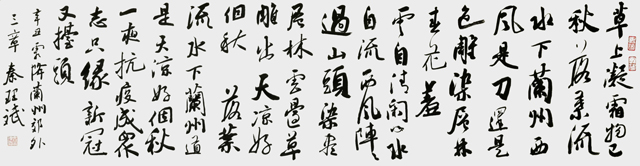 草上凝霜物已
秋落葉流
水下蘭州西
風是刀還是
色雕染層林
春花羞
雲自清閑水
自流西風陣陣
過山頭染盡
層林雲疊草
雕出天凉好
個秋 落葉
流水下蘭州道
是天凉好個秋
一夜抗疫成衆
志只緣新冠
又擡頭
辛丑霜降蘭州郊外
三章 秦理斌